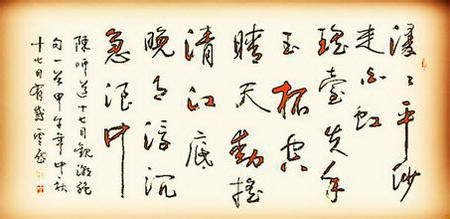 漫々平沙
走白虹
瑶臺失手
玉杯空
晴天動搖
清江底
晚日浮沉
急浪中
陳師道十七日觀潮絶
句一首甲午年中秋
十七日有感雲